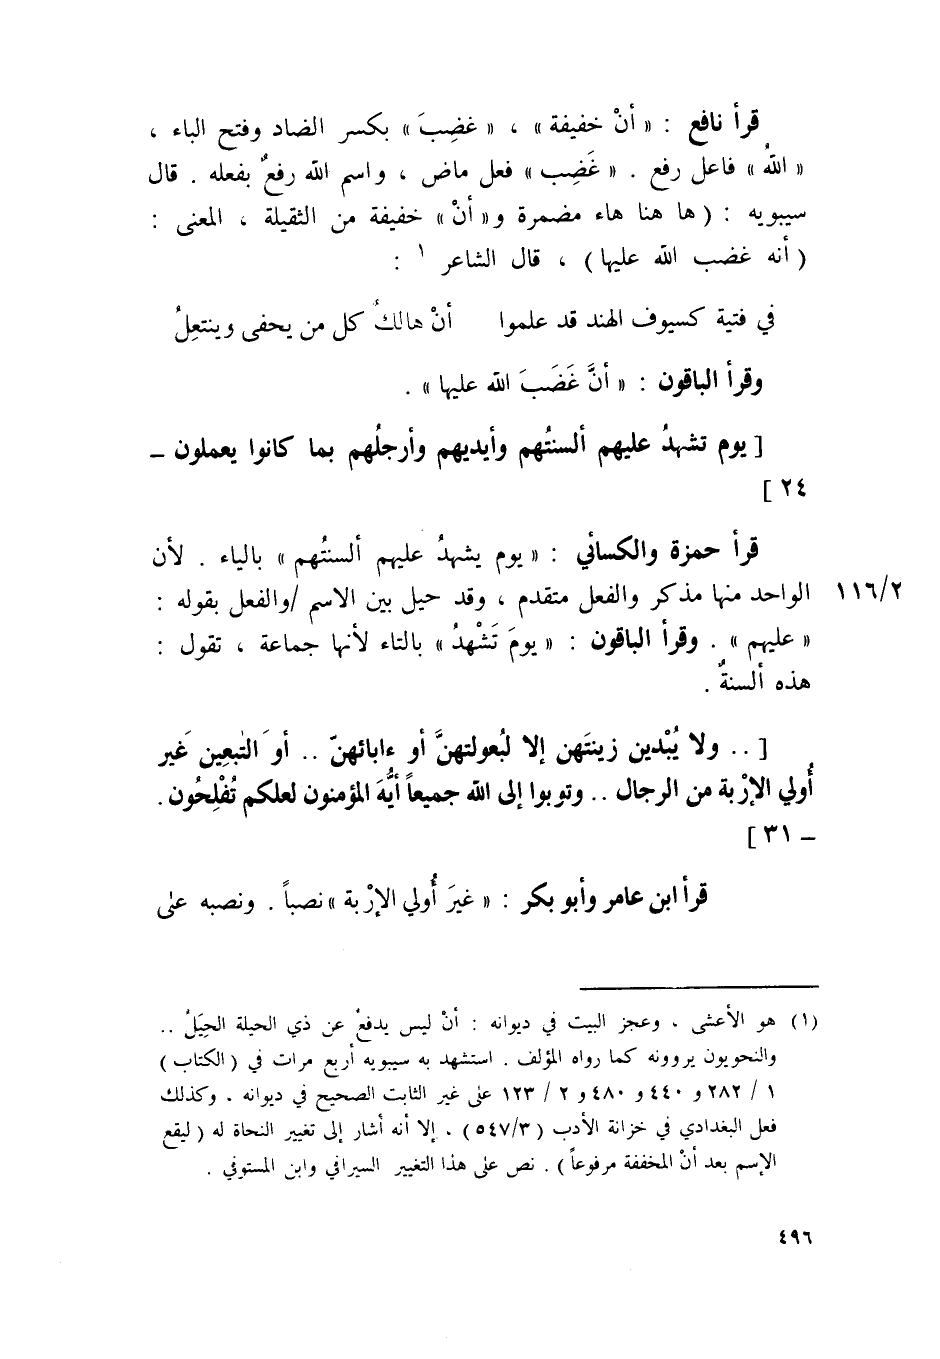 قرأ نافع : « أنْ خفيفة » ، « غضِبَ » بكسر الضاد وفتح الباء ،
« اللهُ » فاعل رفع . « غَضِب » فعل ماض ، واسم الله رفعٌ بفعله . قال
سيبويه : ( ها هنا هاء مضمرة و« أنْ » خفيفة من الثقيلة ، المعنى :
( أنه غضب الله عليها ) ، قال الشاعر ١ :
في فتية كسيوف الهند قد علموا أنْ هالكٌ كل من يحفى وينتعِلُ
وقرأ الباقون : « أنَّ غَضَبَ الله عليها » .
[ يوم تشهدُ عليهم ألسنتُهم وأيديهم وأرجلُهم بما كانوا يعملون –
٢٤ ]
قرأ حمزة والكسائي : « يوم يشهدُ عليهم ألسنتُهم » بالياء . لأن
١١٦/٢ الواحد منها مذكر والفعل متقدم ، وقد حيل بين الاسم /والفعل بقوله :
« عليهم » . وقرأ الباقون : « يومَ تَشْهدُ » بالتاء لأنها جماعة ، تقول :
هذه ألسنةٌ .
[ .. ولا يُبْدين زينتَهن إلا لبُعولتهنَّ أو ءابائهنّ .. أوَ التٰبعِين غَير
أُولي الإرْبة من الرجال .. وتوبوا إلى الله جميعاً أيُّهَ المؤمنون لعلكم تُفْلِحُون .
– ٣١ ]
قرأ ابن عامر وأبو بكر : « غيرَ أُولي الإرْبة » نصباً . ونصبه على
(١) هو الأعشى ، وعجز البيت في ديوانه : أنْ ليس يدفعُ عن ذي الحيلة الحِيَلُ ..
والنحويون يروونه كما رواه المؤلف . استشهد به سيبويه أربع مرات في ( الكتاب )
١ / ٢٨٢ و ٤٤٠ و ٤٨٠ و ٢ / ١٢٣ على غير الثابت الصحيح في ديوانه . وكذلك
فعل البغدادي في خزانة الأدب ( ٥٤٧/٣ ) . إلا أنه أشار إلى تغيير النحاة له ( ليقع
الإسم بعد أنْ المخففة مرفوعاً ) . نص على هذا التغيير السيرافي وابن المستوفي .
٤٩٦